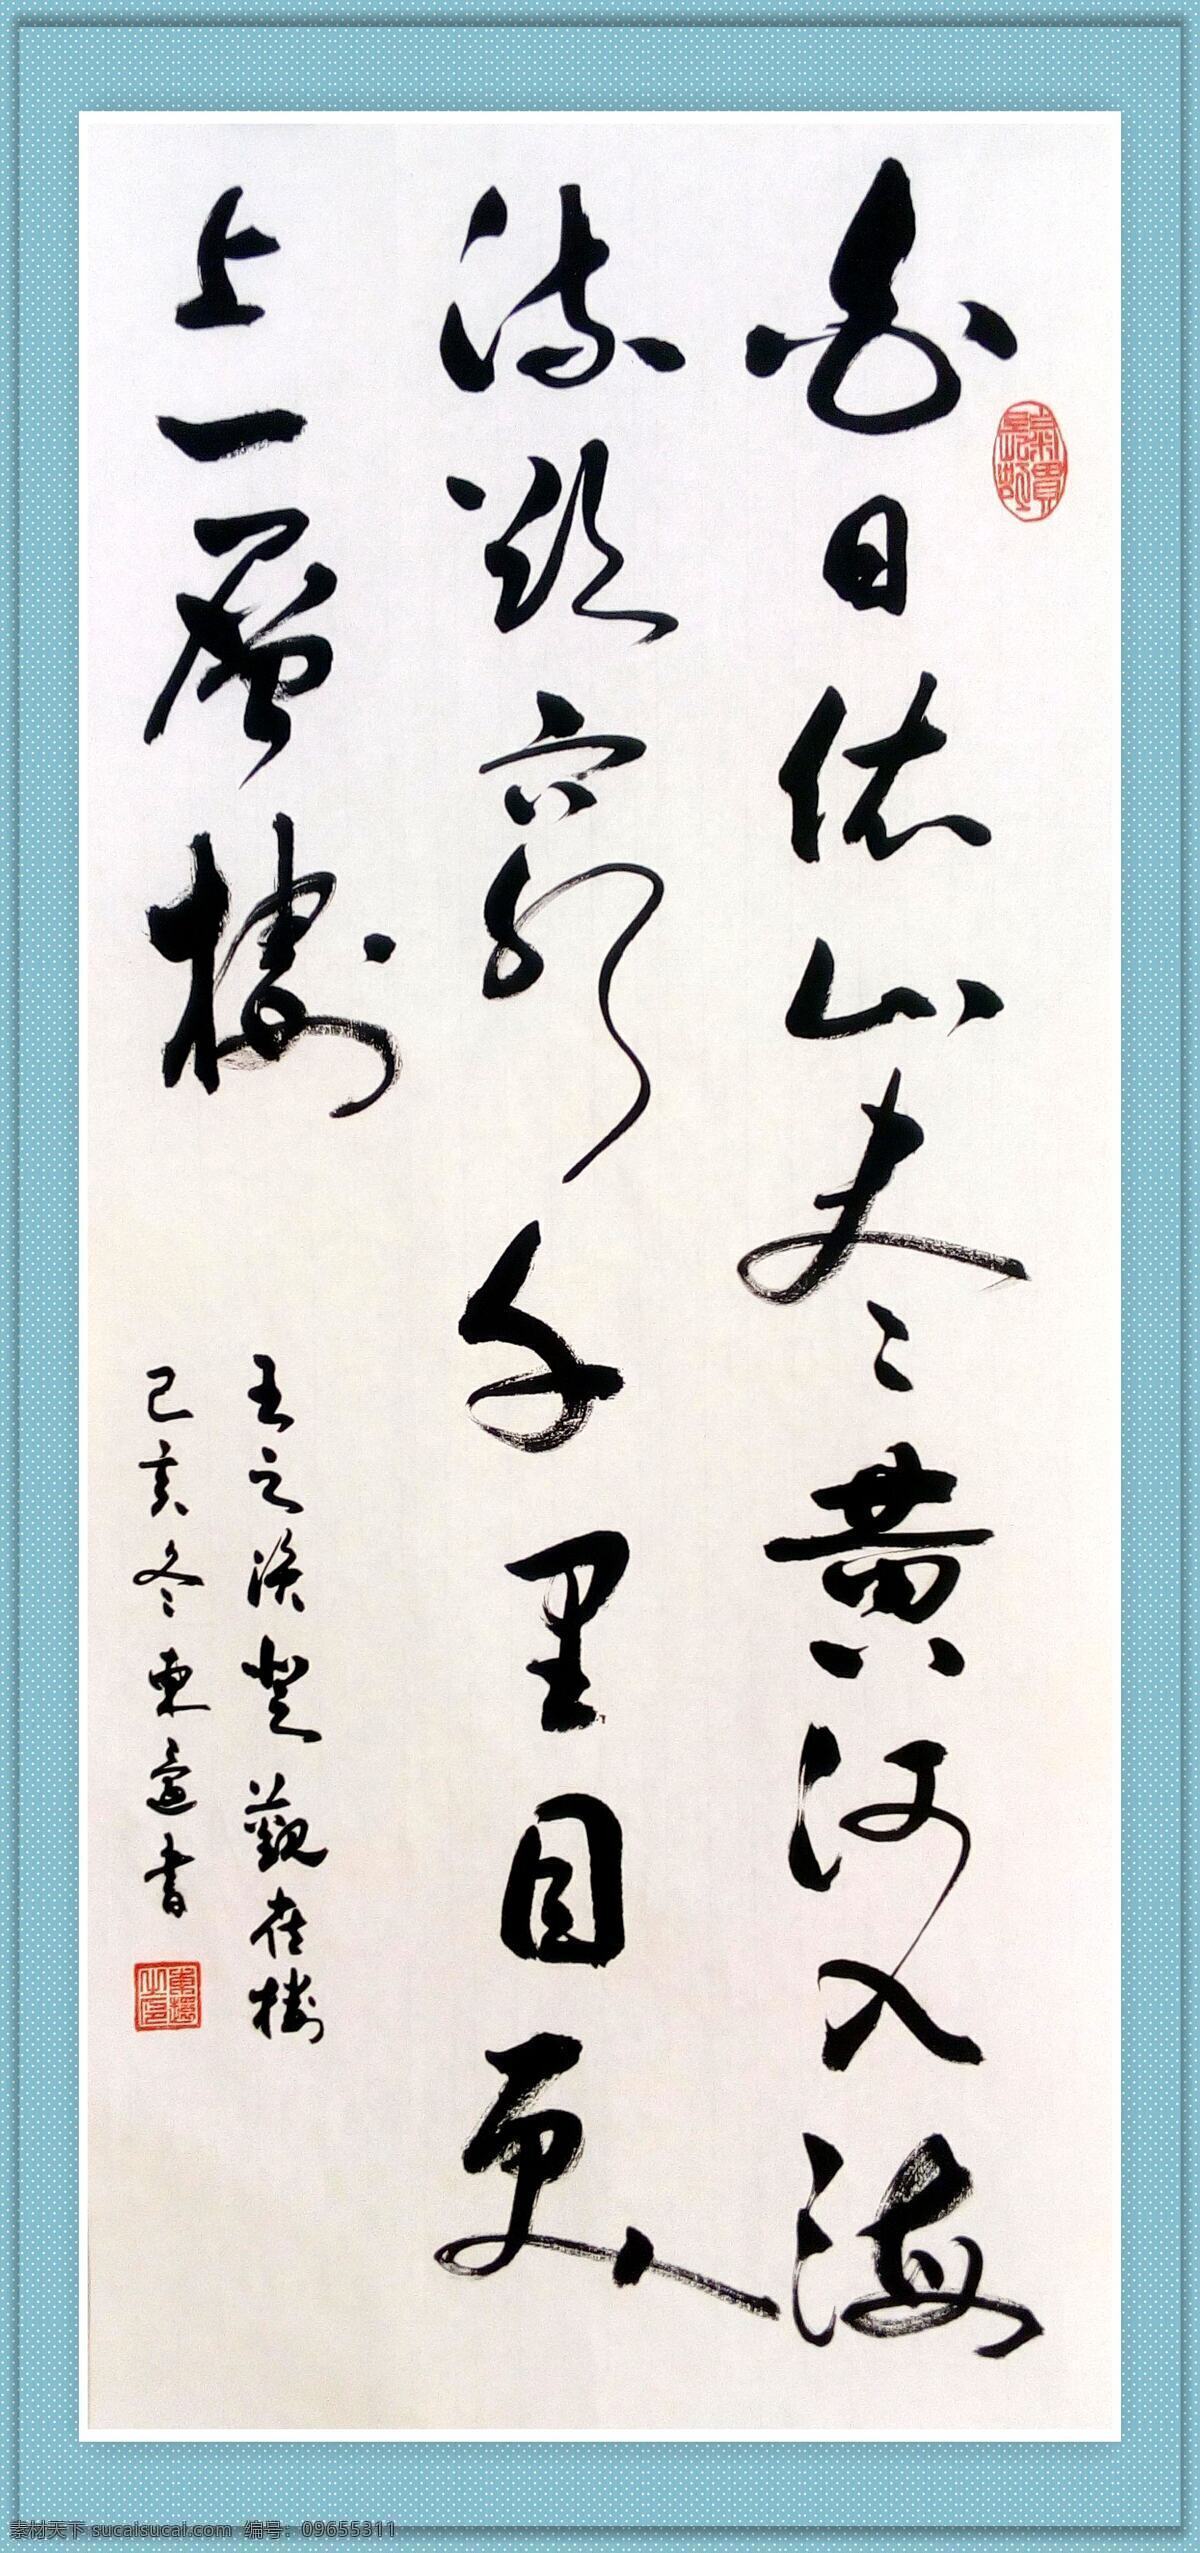 白日依山尽黄河入海
流欲穷千里目更
上一层楼
王之涣登觀雀樓
己亥冬東邁書
素材天下 sucaisucai.com 编号：09655311